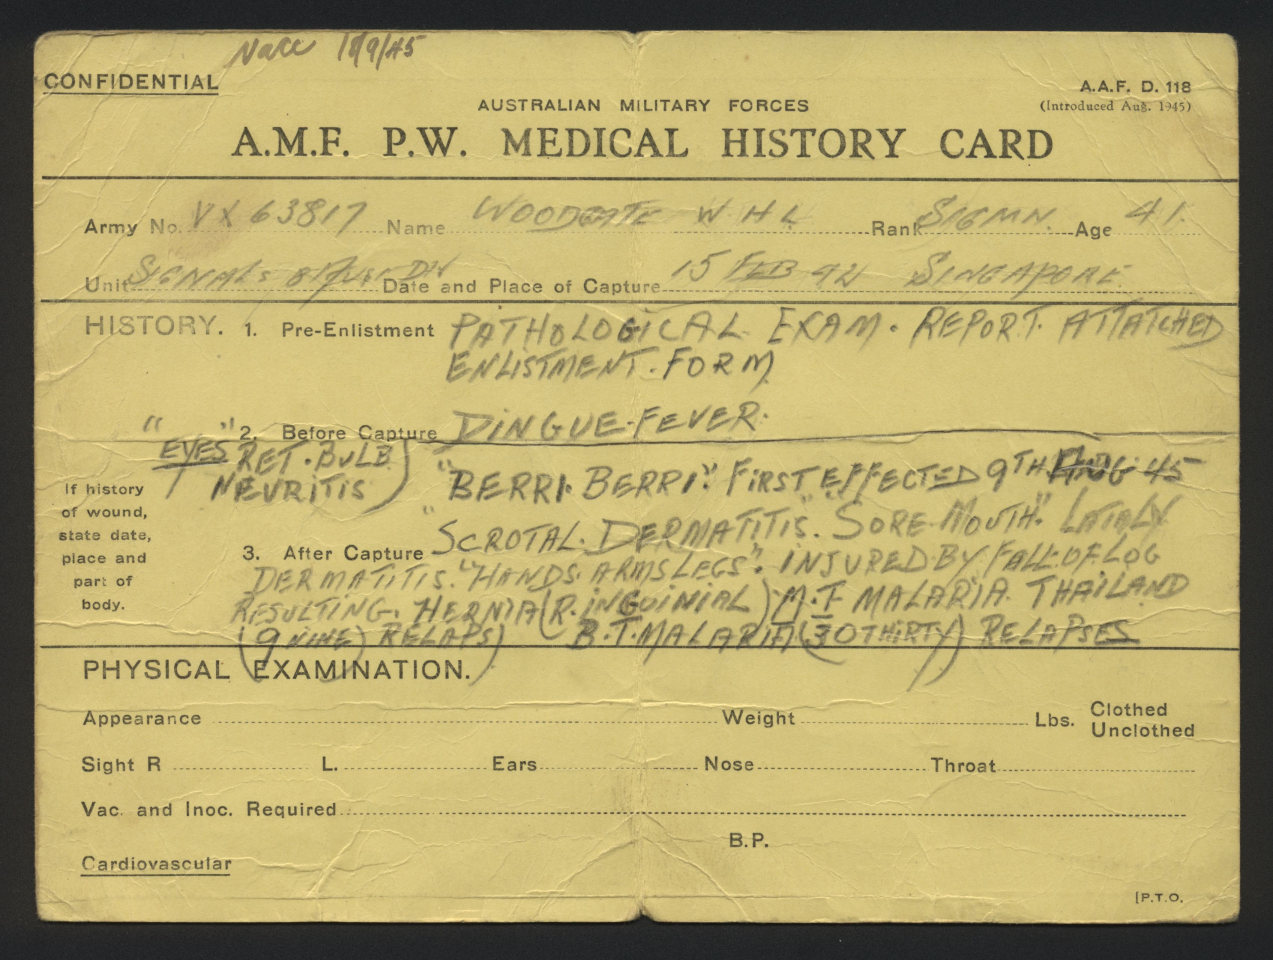 18/9/45
CONFIDENTIAL
A.A.F. D. 118
(Introduced Aug. 1945)
AUSTRALIAN MILITARY FORCES
A.M.F. P.W. MEDICAL HISTORY CARD
Army No. VX 63817 Name WOODGATE W H L Rank SIGMN. Age 41.
Unit SIGNALS 8 AUST DIV Date and Place of Capture 15 FEB 42 SINGAPORE
HISTORY. 1. Pre-Enlistment PATHOLOGICAL EXAM. REPORT. ATTATCHED
ENLISTMENT. FORM
2. Before Capture DINGUE-FEVER.
"EYES" RET. BULB
NEURITIS)
"BERRI. BERRI". FIRST EFFECTED 9TH AUG 45
If history
of wound,
state date,
place and
part of
body.
3. After Capture "SCROTAL. DERMATITIS". "SORE. MOUTH". LATELY
DERMATITIS. "HANDS. ARMS LEGS". INJURED. BY FALL. OF. LOG
RESULTING. HERNIA (R. INGUINIAL) M.T MALARIA. THAILAND
(9 NINE) RELAPS) B.T. MALARIA (30 THIRTY) RELAPSES
PHYSICAL EXAMINATION.
Appearance Weight Lbs. Clothed
Unclothed
Sight R L. Ears Nose Throat
Vac. and Inoc. Required
B.P.
Cardiovascular
[P.T.O.